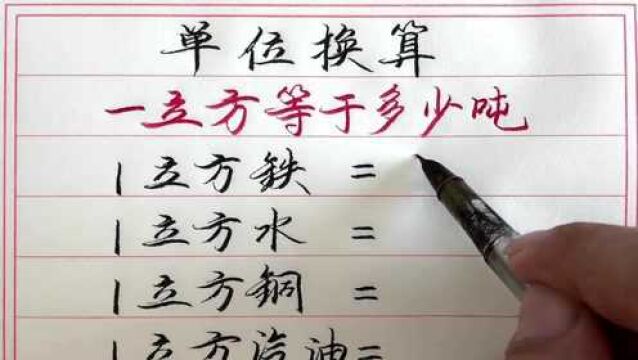 单位换算
一立方等于多少吨
1立方鉄 =
1立方水 =
1立方銅 =
1立方汽油=